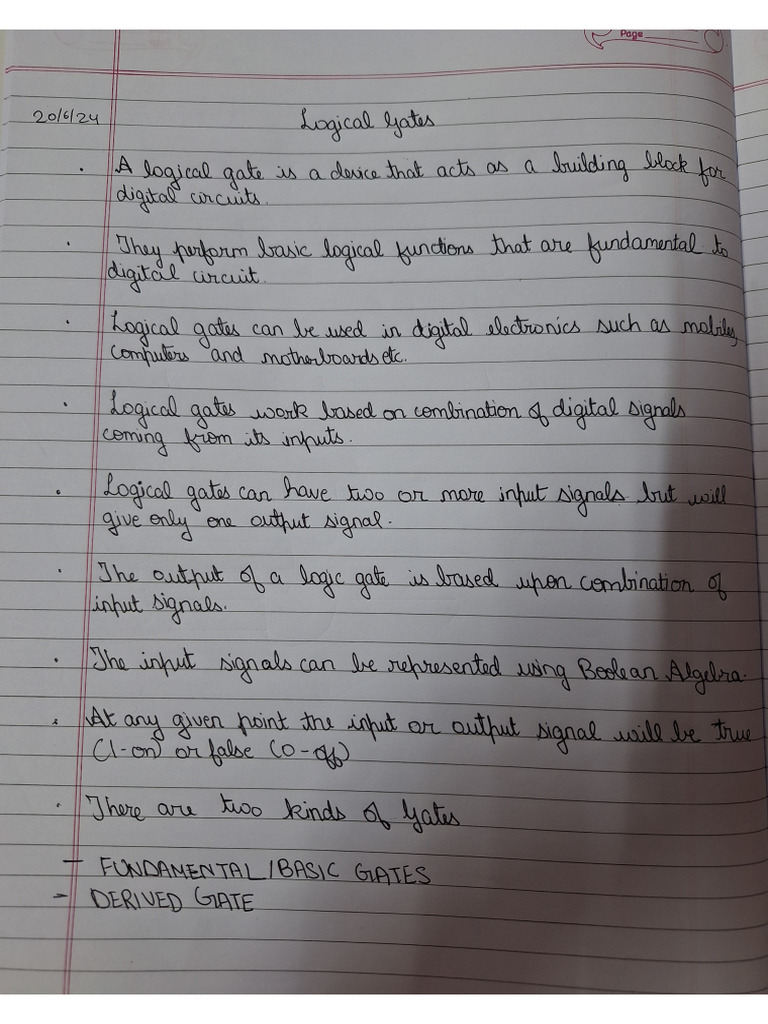 Page
20/6/24
Logical Gates
. A logical gate is a device that acts as a building block for
digital circuits.
. They perform basic logical functions that are fundamental to
digital circuit.
. Logical gates can be used in digital electronics such as mobiles,
computers and motherboards etc.
. Logical gates work based on combination of digital signals
coming from its inputs.
. Logical gates can have two or more input signals but will
give only one output signal.
. The output of a logic gate is based upon combination of
input signals.
. The input signals can be represented using Boolean Algebra.
. At any given point the input or output signal will be true
(1-on) or false (0-off)
. There are two kinds of Gates
- FUNDAMENTAL/BASIC GATES
- DERIVED GATE